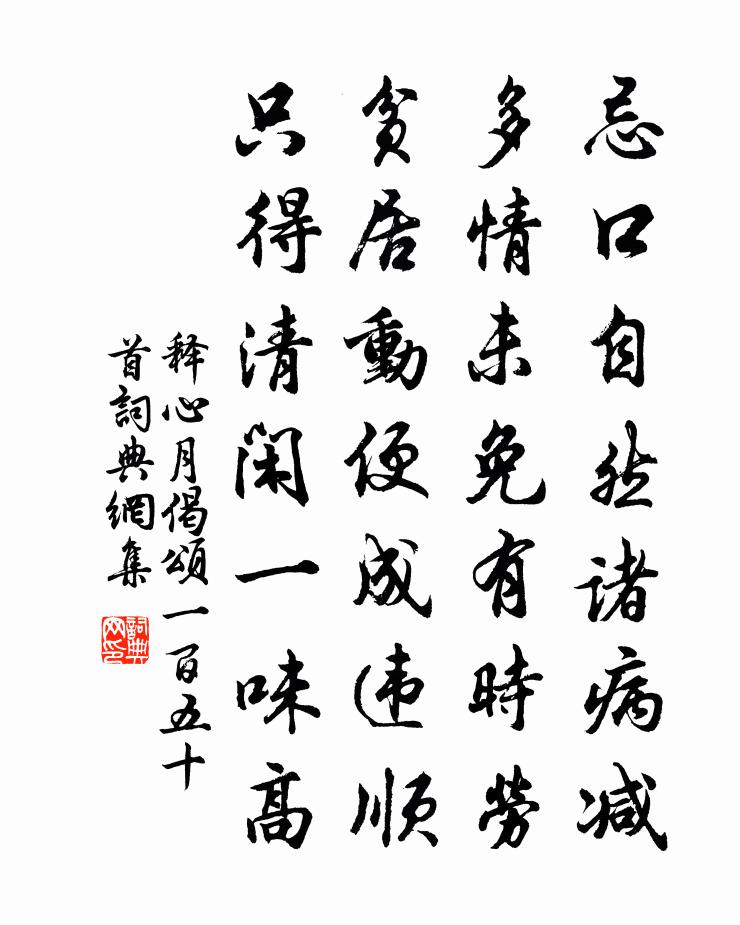 忌口自然諸病减
多情未免有時勞
貧居動便成违順
只得清閑一味高
释心月偈頌一百五十
首詞典網集
詞典网印